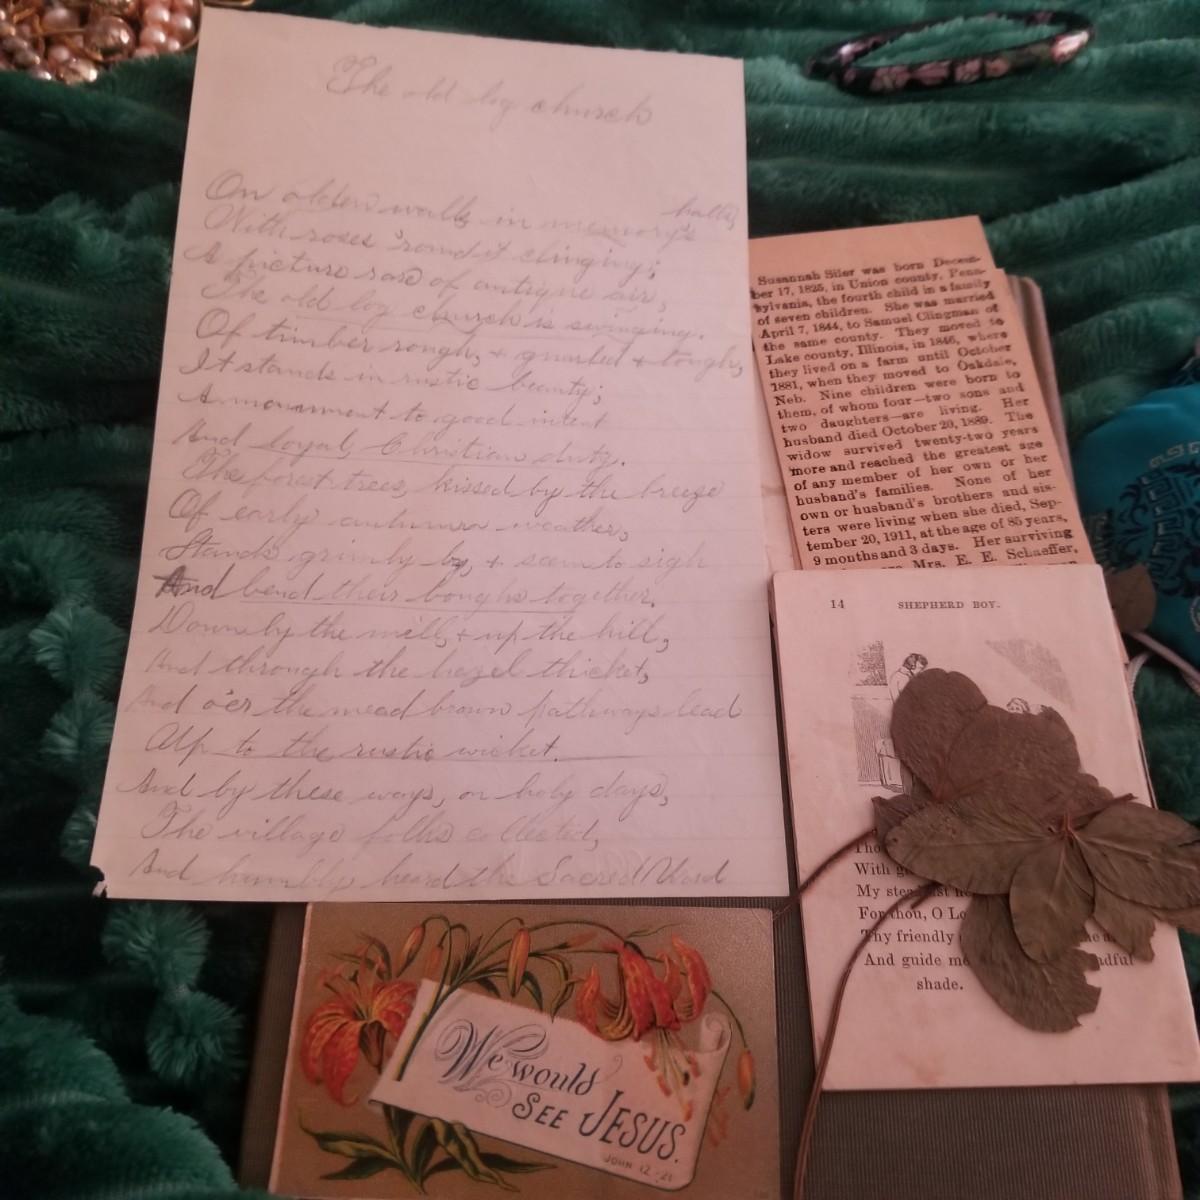 The old log church
On olden walls in memory's halls,
With roses 'round it clinging;
A picture rare of antique air,
The old log church is swinging.
Of timber rough, + gnarled + tough,
It stands in rustic beauty;
A monument to good intent
And loyal Christian duty.
The forest trees, kissed by the breeze
Of early autumn weather,
Stands grimly by, + seem to sigh
And bend their boughs together.
Down by the mill, + up the hill,
And through the hazel thicket,
And o'er the mead brown pathways lead
Up to the rustic wicket.
And by these ways, on holy days,
The village folks collected,
And humbly heard the Sacred Word
Susannah Siler was born Decem-
ber 17, 1825, in Union county, Penn-
sylvania, the fourth child in a family
of seven children. She was married
April 7, 1844, to Samuel Clingman of
the same county. They moved to
Lake county, Illinois, in 1846, where
they lived on a farm until October
1881, when they moved to Oakdale,
Neb. Nine children were born to
them, of whom four—two sons and
two daughters—are living. Her
husband died October 20, 1889. The
widow survived twenty-two years
more and reached the greatest age
of any member of her own or her
husband's families. None of her
own or husband's brothers and sis-
ters were living when she died, Sep-
tember 20, 1911, at the age of 85 years,
9 months and 3 days. Her surviving
Mrs. E. E. Schaeffer,
14 SHEPHERD BOY.
With
My
For thou, O
Thy friendly
And guide me
shade.
We would
SEE JESUS.
JOHN 12-21